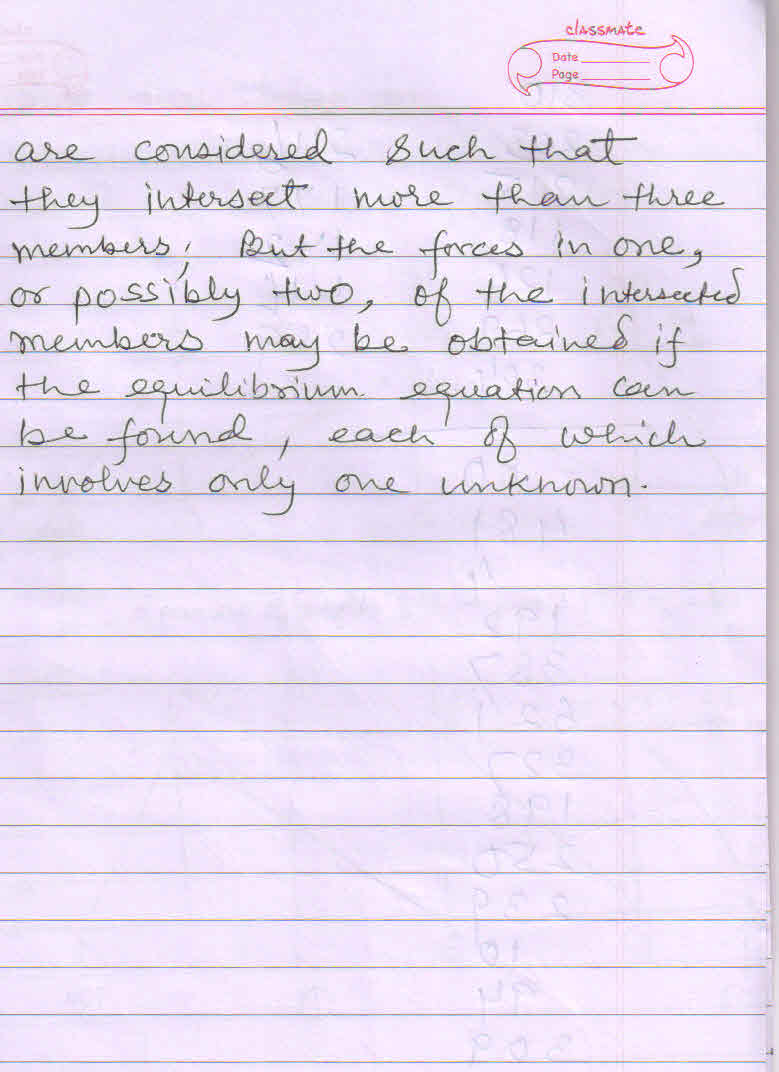 classmate
Date
Page
are considered such that
they intersect more than three
members; But the forces in one,
or possibly two, of the intersected
members may be obtained if
the equilibrium equation can
be found, each of which
involves only one unknown.